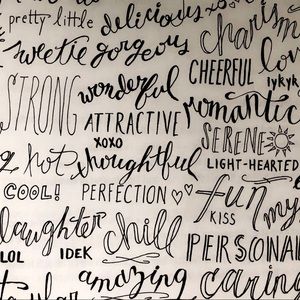 pretty little delicious xoxo charism
sweetie gorgeous
CHEERFUL love
iykyk
STRONG wonderful romantic
ATTRACTIVE SERENE
xoxo
hot thoughtful LIGHT-HEARTED
COOL! PERFECTION fun my
KISS
laughter chill
LOL IDEK PERSONA
amazing caring